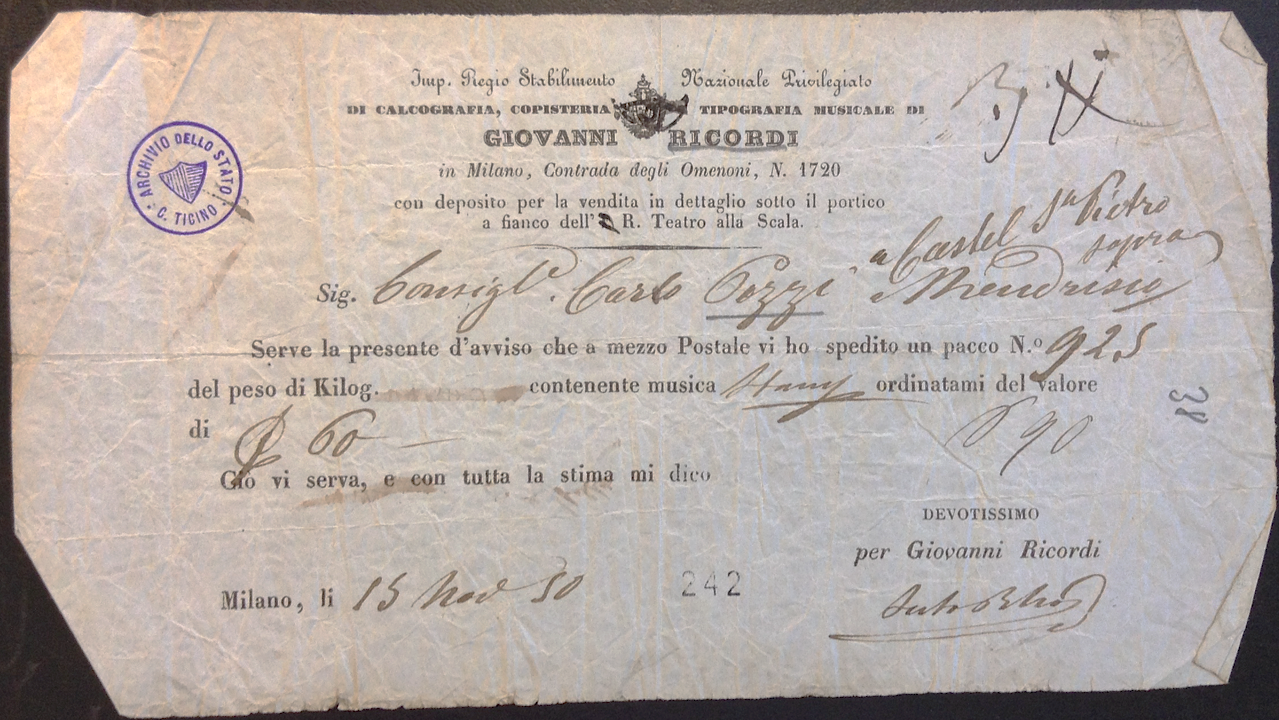 Imp. Regio Stabilimento Nazionale Privilegiato
DI CALCOGRAFIA, COPISTERIA TIPOGRAFIA MUSICALE DI
GIOVANNI RICORDI
in Milano, Contrada degli Omenoni, N. 1720
con deposito per la vendita in dettaglio sotto il portico
a fianco dell' R. Teatro alla Scala.
ARCHIVIO DELLO STATO
C. TICINO
a Castel Sn Pietro
sopra
Sig. Consigl.e Carlo Pozzi a Mendrisio
Serve la presente d'avviso che a mezzo Postale vi ho spedito un pacco N.o 925
del peso di Kilog. contenente musica ordinatami del valore
di 60
90
38
Ciò vi serva, e con tutta la stima mi dico
DEVOTISSIMO
per Giovanni Ricordi
Milano, li 15 Nov 50
242